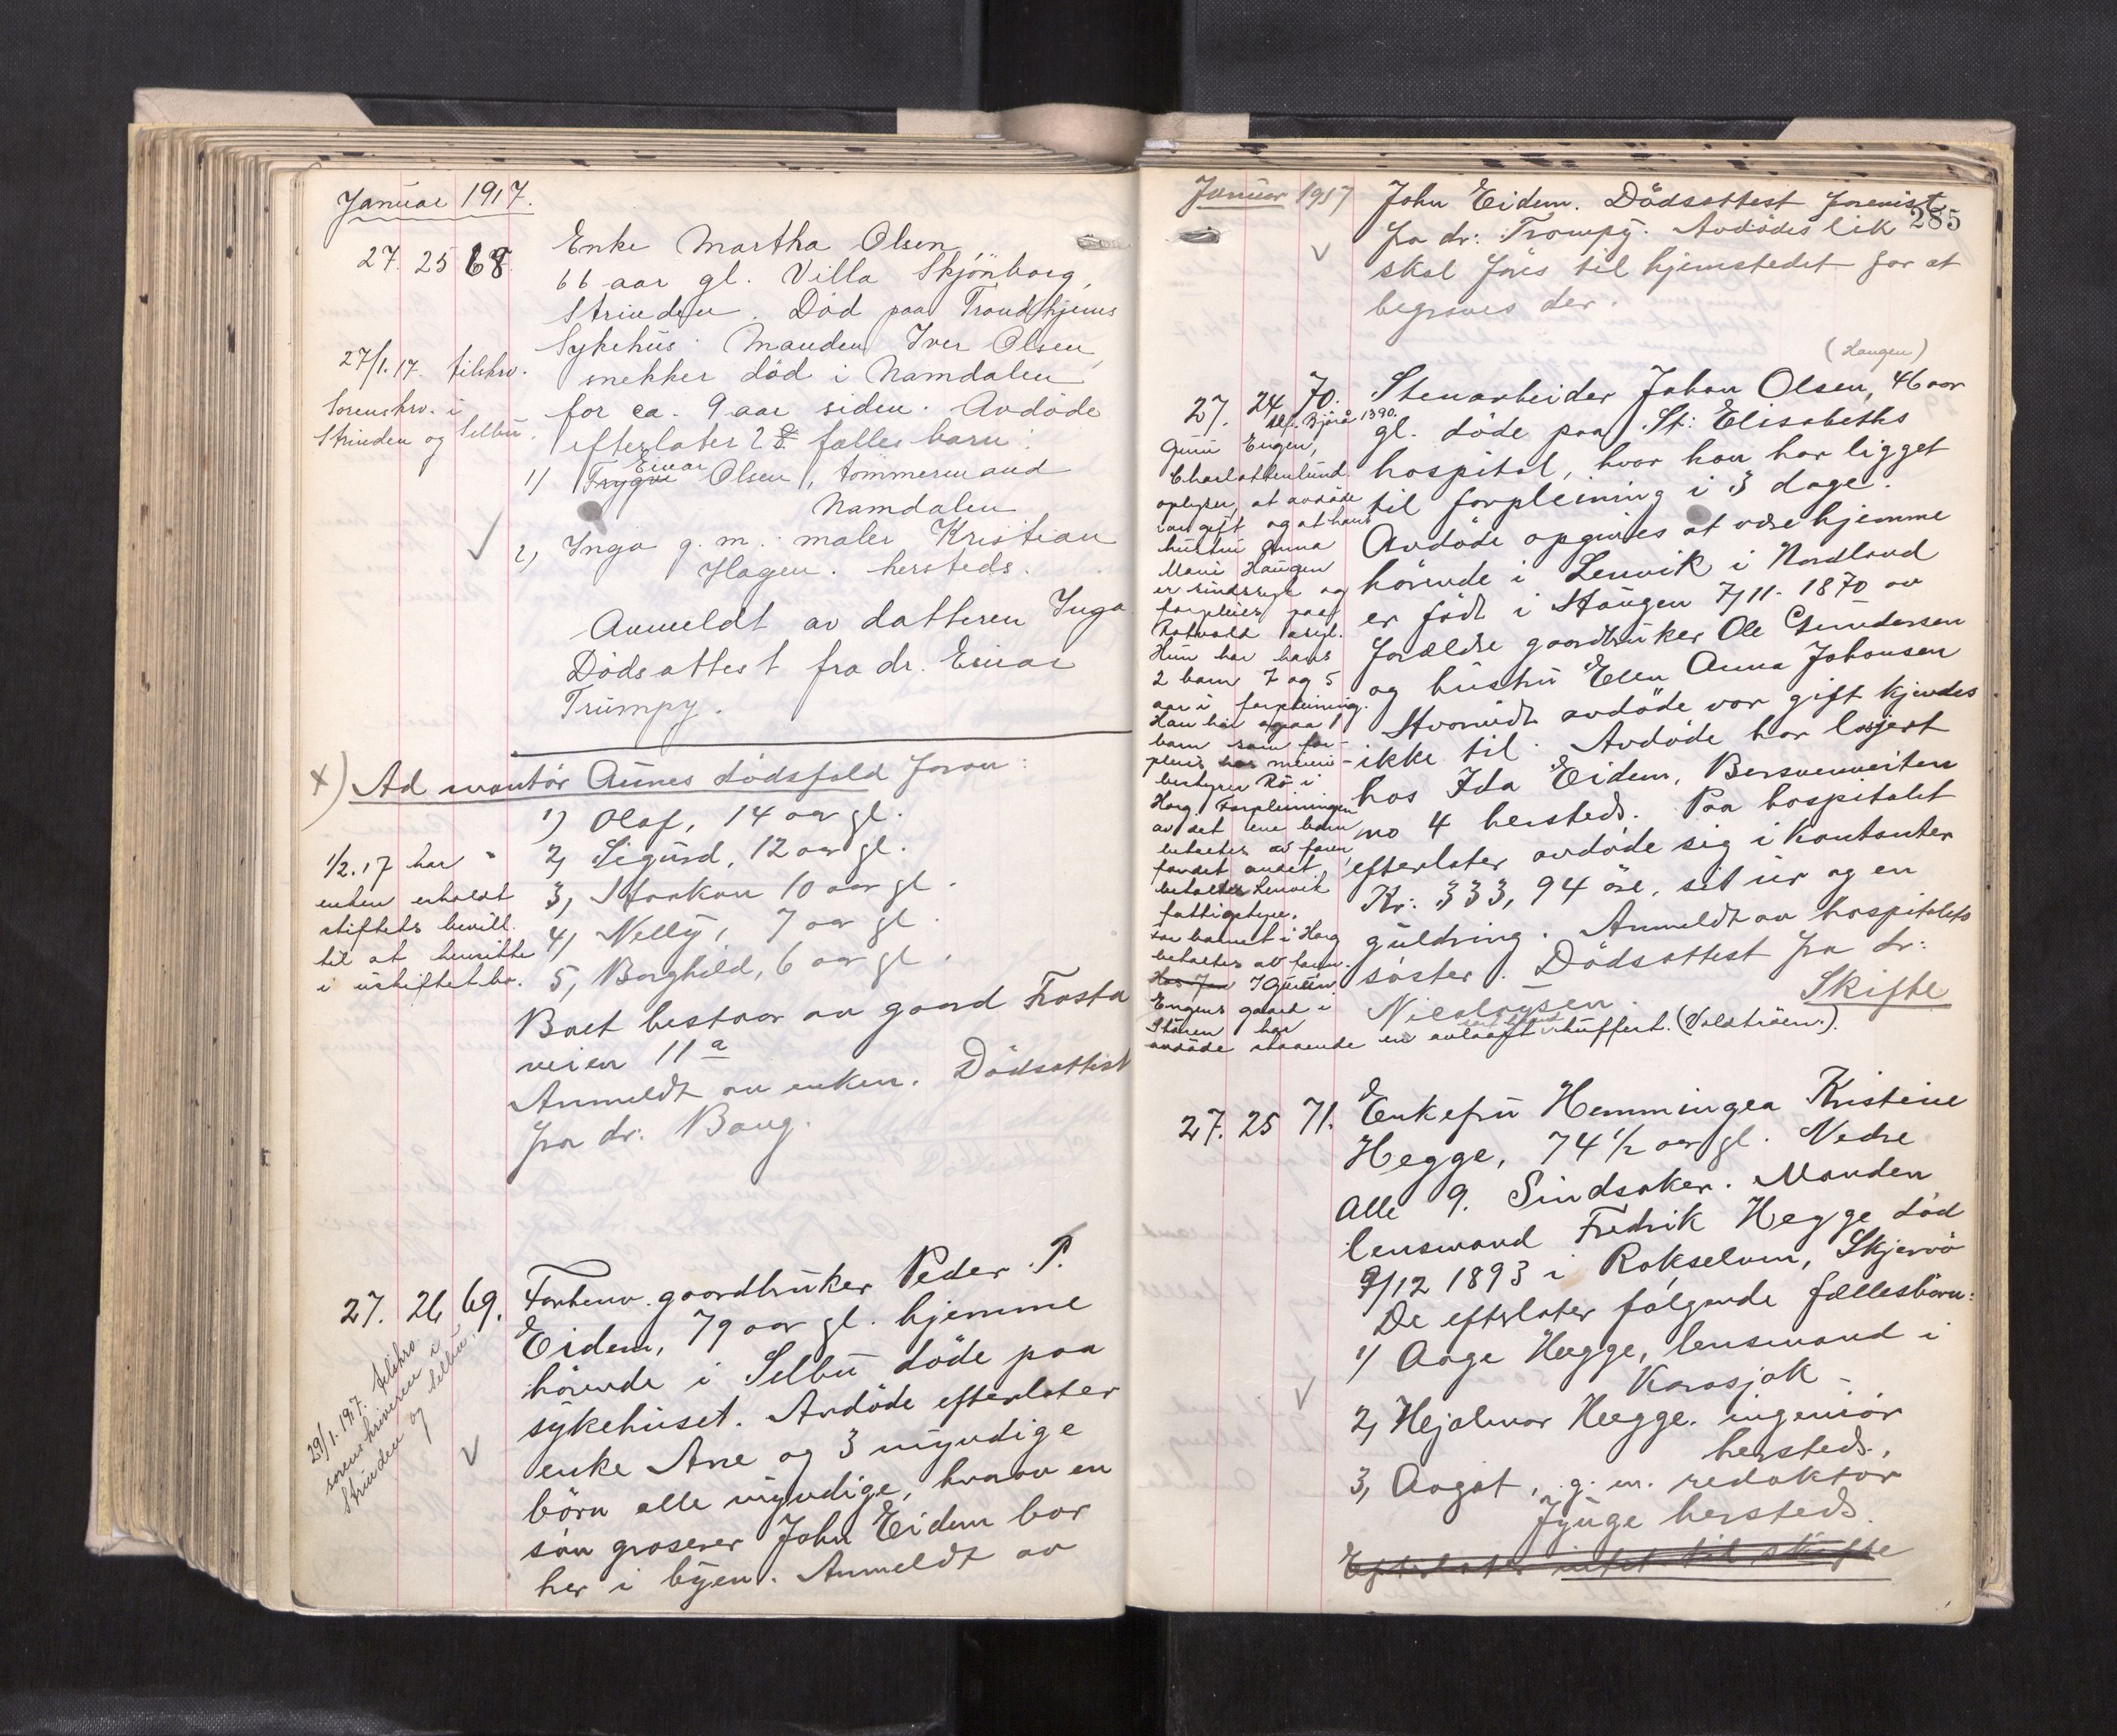 Januar 1917.
27. 25 68.
Enke Martha Olsen
66 aar gl. Villa Skjönborg,
Strinden. Död paa Trondhjems
Sykehus. Manden Iver Olsen,
snekker död i Namdalen
for ca. 9 aar siden. Avdöde
efterlater 2 fælles barn:
1) Trygve Einar Olsen, tömmermand
Namdalen
2) Inga g. m. maler Kristian
Hagen. hersteds.
Anmeldt av datteren Inga
Dödsattest fra dr. Einar
Trumpy.
27/1.17. tilskr.
Sorenskr. i
Strinden og Selbu.
x) Ad montör Aunes dödsfald foran:
1) Olaf, 14 aar gl.
2) Sigurd, 12 aar gl.
3) Haakon 10 aar gl.
4) Nelly, 7 aar gl.
5) Borghild, 6 aar gl.
1/2.17 har
enken erholdt
stiftets bevill.
til at hensitte
i uskiftet bo.
Boet bestaar av gaard Frosta
veien 11a
Anmeldt av enken. Dödsattest
fra dr. Baug.
27. 26 69.
Forhenv. gaardbruker Peder P.
Eidem, 79 aar gl. hjemme
hörende i Selbu döde paa
sykehuset. Avdöde efterlater
enke Ane og 3 myndige
börn alle myndige, hvorav en
sön groserer John Eidem bor
her i byen. Anmeldt av
29/1.1917. tilskr.
sorenskriveren i
Strinden og Selbu.
Januar 1917
285
John Eidem. Dödsattest forevist
fra dr: Trumpy. Avdödes lik
skal föres til hjemstedet for at
begraves der.
(Haugen)
27. 24 70. Stenarbeider Johan Olsen, 46 aar
gl. döde paa St: Elisabeths
hospital, hvor han har ligget
til forpleining i 3 dage.
Avdöde opgives at være hjemme
hörende i Lenvik i Nordland
er födt i Haugen 7/11. 1870 av
forældre gaardbruker Ole Gundersen
og hustru Ellen Anna Johansen
Hvorvidt avdöde var gift kjendes
ikke til. Avdöde har losjert
hos Ida Eidem, Bersvenveiten
no 4 hersteds. Paa hospitalet
efterlater avdöde sig i kontanter
Kr: 333,94 öre, sit ur og en
guldring. Anmeldt av hospitalets
söster. Dödsattest fra dr:
Nicolaysen.
Skifte
1390.
Engen,
Charlottenlund
oplyser, at avdöde
var gift og at hans
hustru Anna
Marie Haugen
er sindssyk og
forpleies paa
Rotvold asyl.
Hun har hans
2 barn 7 og 5
aar i forpleining.
Han har ogsaa 1
barn som for-
pleies hos meieri-
bestyrer Rö i
Horg. Forpleiningen
av det ene barn
betaltes av faren,
for det andet
betaltes Lenvik
fattigstyre.
For barnet i Horg
betaltes av faren.
I
Engens gaard i
Stören har
avdöde staaende en avlaast kuffert. (Voldtröen.)
27. 25 71. Enkefru Hemmingea Kristine
Hegge, 74 1/2 aar gl. Nedre
Alle 9. Sindsaker. Manden
lensmand Fredrik Hegge död
9/12 1893 i Rakselvm, Skjervö
De efterlater følgende fællesbörn:
1) Aage Hegge, lensmand i
Karasjok
2) Hjalmar Hegge. ingeniör
hersteds.
3) Aagot, g. m. redaktör
Jynge hersteds.
Efterlater intet til skifte